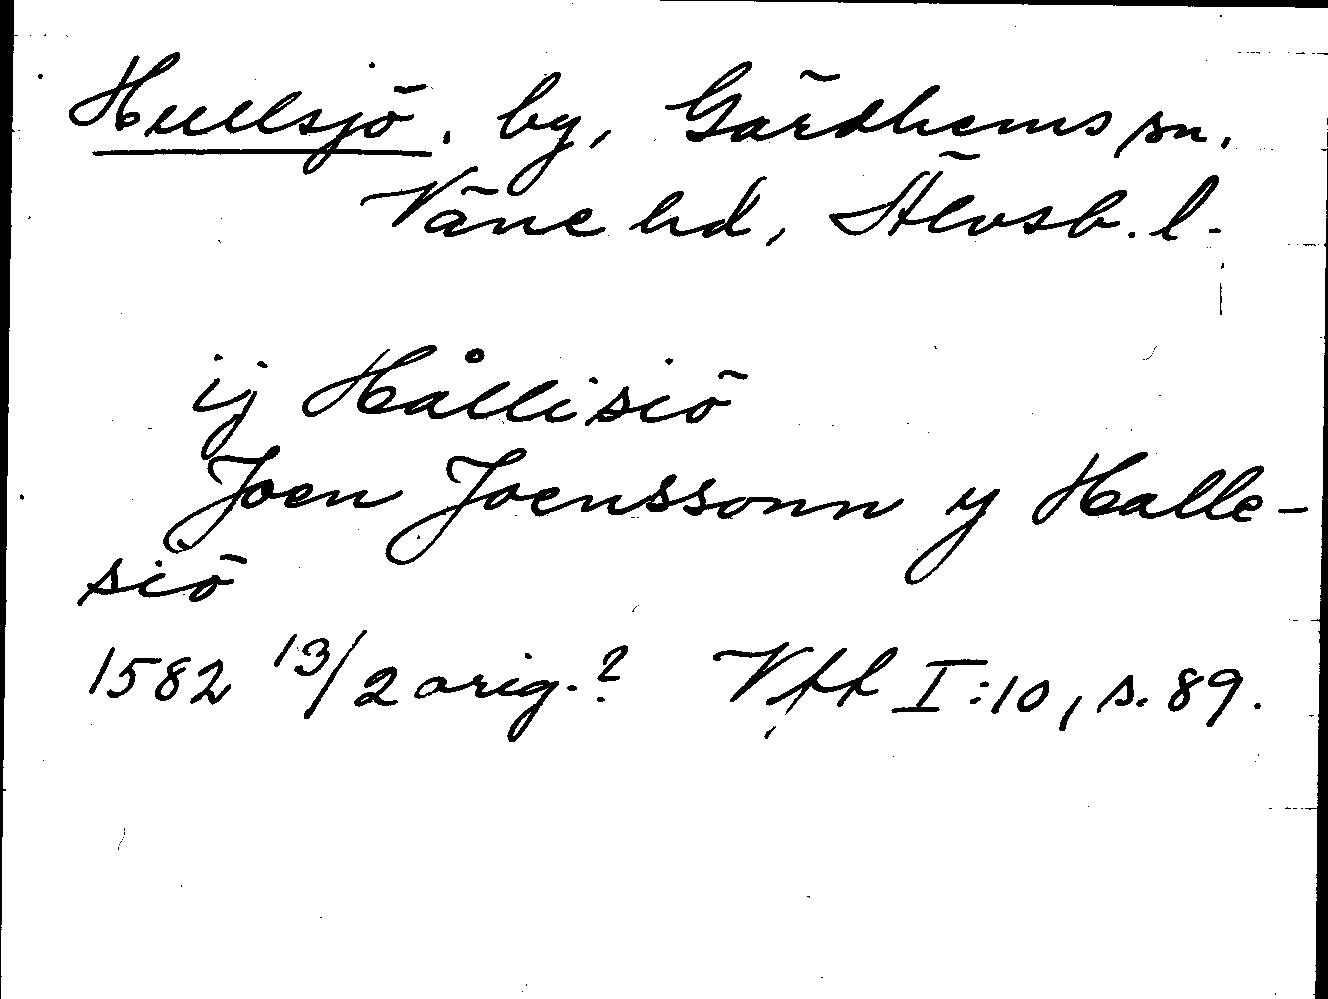 Hullsjö, by, Gärdhems sn,
Väne hd, Älvsb. l.
ij Hållisiö
Joen Joenssonn y Halle-
siö
1582 13/2 orig.? Vftt I:10, s. 89.